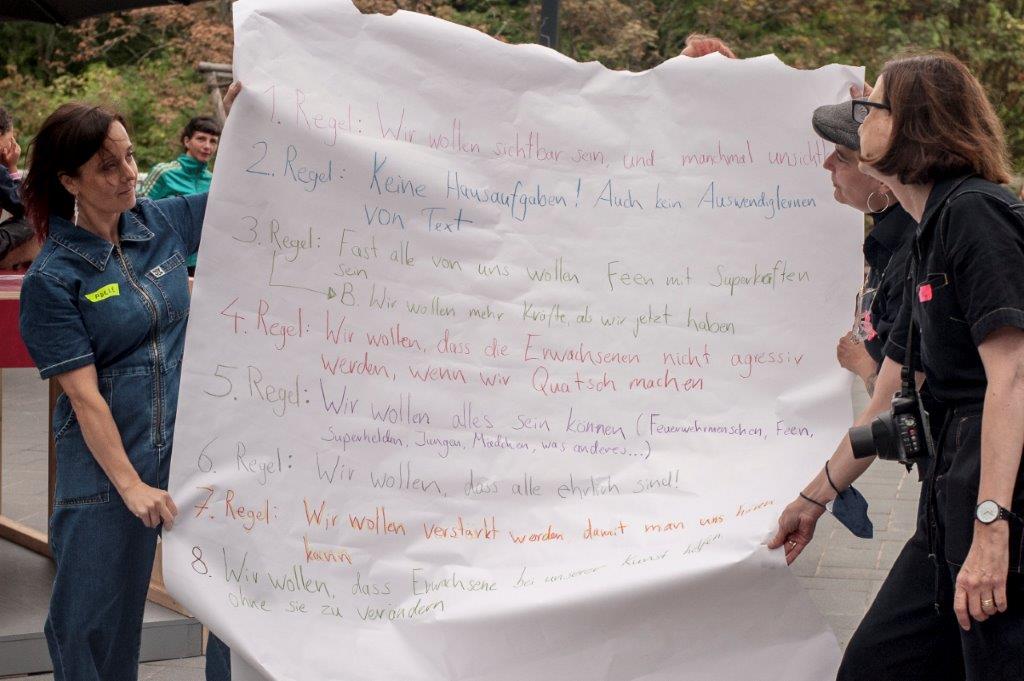 1. Regel: Wir wollen sichtbar sein, und manchmal unsichtb
2. Regel: Keine Hausaufgaben! Auch kein Auswendiglernen
von Text
3. Regel: Fast alle von uns wollen Feen mit Superkräften
sein
B. Wir wollen mehr Kräfte, als wir jetzt haben
4. Regel: Wir wollen, dass die Erwachsenen nicht agressiv
werden, wenn wir Quatsch machen
5. Regel: Wir wollen alles sein können (Feuerwehrmenschen, Feen,
Superhelden, Jungen, Mädchen, was anderes...)
6. Regel: Wir wollen, dass alle ehrlich sind!
7. Regel: Wir wollen verstärkt werden damit man uns hören
kann
8. Wir wollen, dass Erwachsene bei unserer Kunst helfen
ohne sie zu verändern